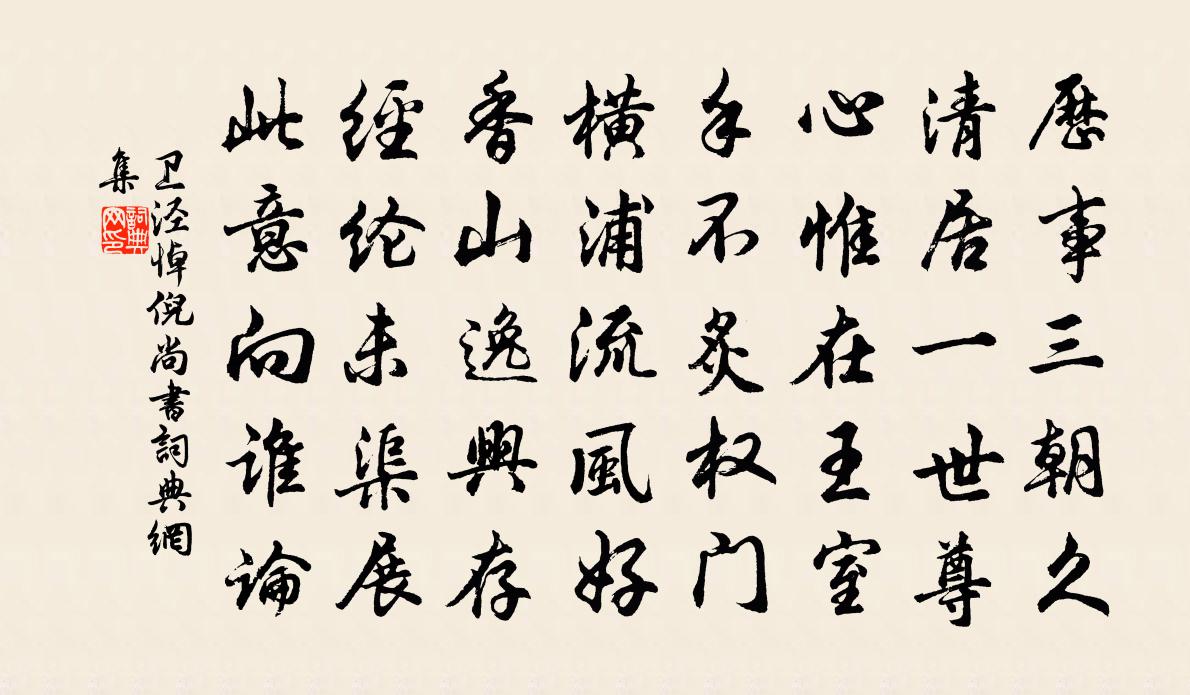 歷事三朝久
清居一世尊
心惟在王室
手不炙权门
橫浦流風好
香山逸興存
經纶未渠展
此意向誰論
卫泾悼倪尚書詞典網
集
詞典网印